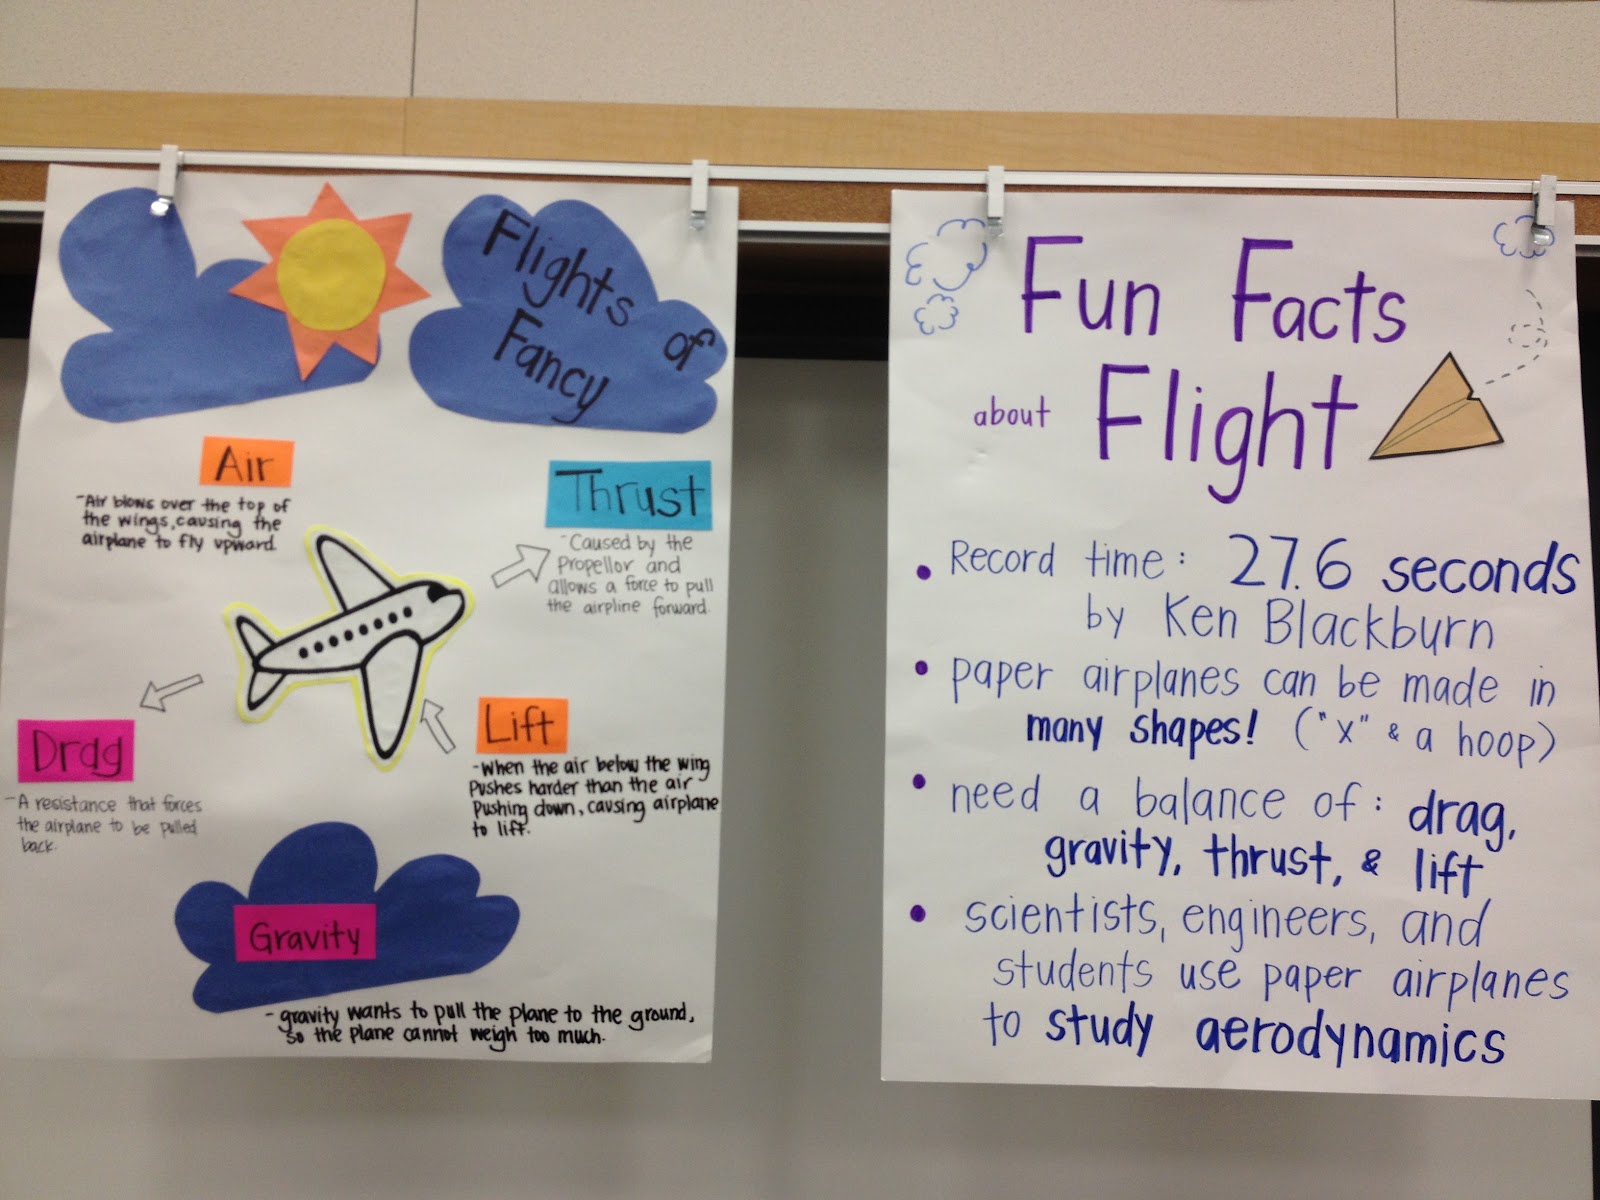 Flights of
Fancy
Air
-Air blows over the top of
the wings, causing the
airplane to fly upward.
Thrust
-Caused by the
Propellor and
allows a force to pull
the airpline forward.
Drag
-A resistance that forces
the airplane to be pulled
back.
Lift
-When the air below the wing
pushes harder than the air
pushing down, causing airplane
to lift.
Gravity
-gravity wants to pull the plane to the ground,
so the plane cannot weigh too much.
Fun Facts
about Flight
• Record time: 27.6 seconds
by Ken Blackburn
• paper airplanes can be made in
many shapes! ("x" & a hoop)
• need a balance of: drag,
gravity, thrust, & lift
• scientists, engineers, and
students use paper airplanes
to study aerodynamics